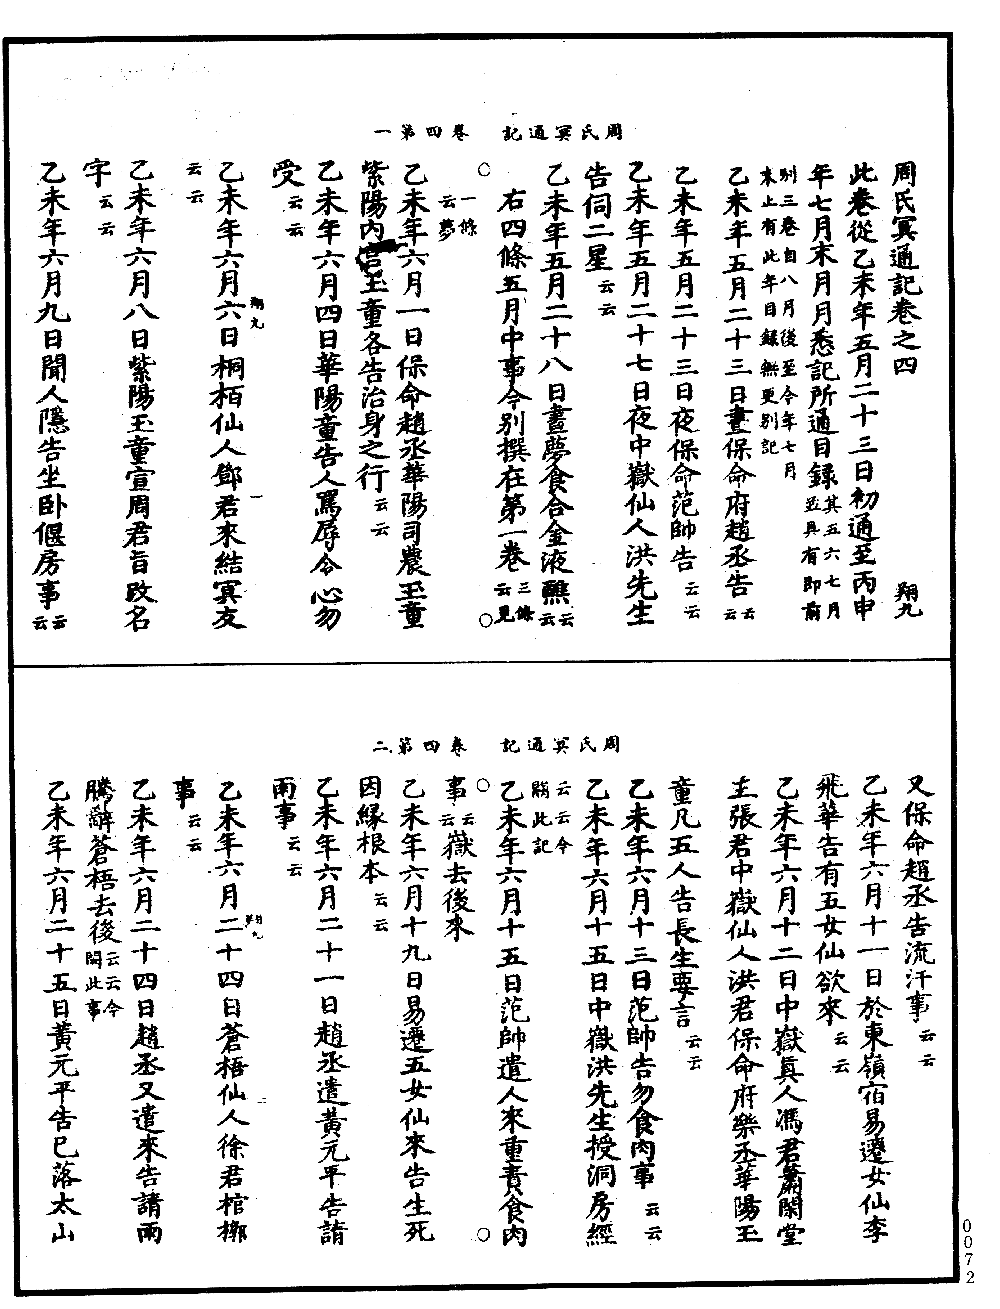 周氏冥通記　卷四第一
周氏冥通記卷之四　翔九
此卷從乙未年五月二十三日初通至丙申
年七月末月月悉記所通目錄其五六七月並具有即前
別三卷自八月後至今年七月
末止有此年目錄無更別記
乙未年五月二十三日晝保命府趙丞告云云
乙未年五月二十三日夜保命范帥告云云
乙未年五月二十七日夜中嶽仙人洪先生
告伺二星云云
乙未年五月二十八日晝夢食合金液醮云云
右四條五月中事今別撰在第一卷三條云見
○一條云夢○
乙未年六月一日保命趙丞華陽司農玉童
紫陽內宮玉童各告治身之行云云
乙未年六月四日華陽童告人罵辱令心勿
受云云
乙未年六月六日桐栢仙人鄧君來結冥友
云云
翔九　一
乙未年六月八日紫陽玉童宣周君旨改名
字云云
乙未年六月九日聞人隱告坐臥偃房事云云
周氏冥通記　卷四第二
又保命趙丞告流汗事云云
乙未年六月十一日於東嶺宿易遷女仙李
飛華告有五女仙欲來云云
乙未年六月十二日中嶽真人馮君蕭閑堂
主張君中嶽仙人洪君保命府樂丞華陽玉
童凡五人告長生要言云云
乙未年六月十三日范帥告勿食肉事云云
乙未年六月十五日中嶽洪先生授洞房經
云云今
闕此記
乙未年六月十五日范帥遣人來重責食肉
○事云云嶽去後來○
乙未年六月十九日易遷五女仙來告生死
因緣根本云云
乙未年六月二十一日趙丞遣黃元平告請
雨事云云
乙未年六月二十四日蒼梧仙人徐君棺槨
事云云
二
乙未年六月二十四日趙丞又遣來告請雨
騰辭蒼梧去後云云今闕此事
乙未年六月二十五日黃元平告已落太山
0072